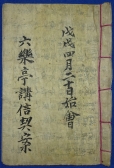 戊戌四月二十日始會
六樂亭講信契案